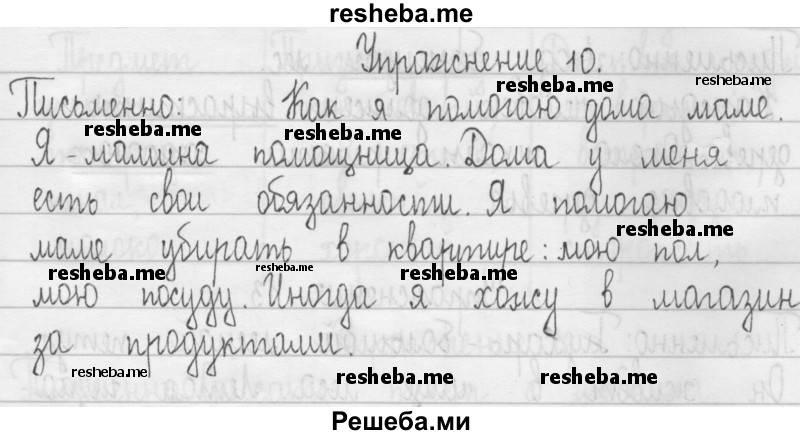 resheba.me
Упражнение 10.
resheba.me
Письменно: Как я помогаю дома маме.
resheba.me resheba.me
Я - мамина помощница. Дома у меня
есть свои обязанности. Я помогаю
resheba.me
маме убирать в квартире: мою пол,
resheba.me resheba.me resheba.me
мою посуду. Иногда я хожу в магазин
за продуктами.
resheba.me resheba.me resheba.me
Решеба.ми